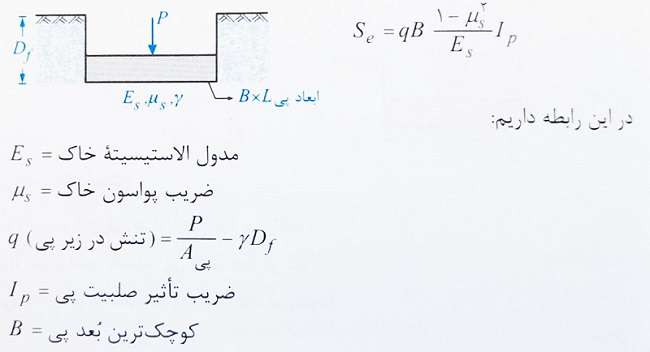 P
D_f
E_s , μ_s , γ
B×L ابعاد پی
S_e = qB (۱ − μ_s^۲ / E_s) I_p
در این رابطه داریم:
E_s = مدول الاستیسیتهٔ خاک
μ_s = ضریب پواسون خاک
q (تنش در زیر پی) = P / A_پی − γD_f
I_p = ضریب تأثیر صلبیت پی
B = کوچک‌ترین بُعد پی